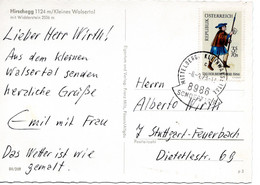 Hirschegg 1124 m/Kleines Walsertal
mit Widderstein 2536 m
Lieber Herr Wirth!
Aus dem kleinen
Walsertal senden
herzliche Grüße
Emil mit Frau
Das Wetter ist wie
gemalt.
REPUBLIK
ÖSTERREICH
8986
Herrn
Albert Wirth
7 Stuttgart-Feuerbach